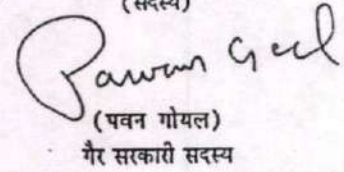 (सदस्य)
Pawan Goel
(पवन गोयल)
गैर सरकारी सदस्य